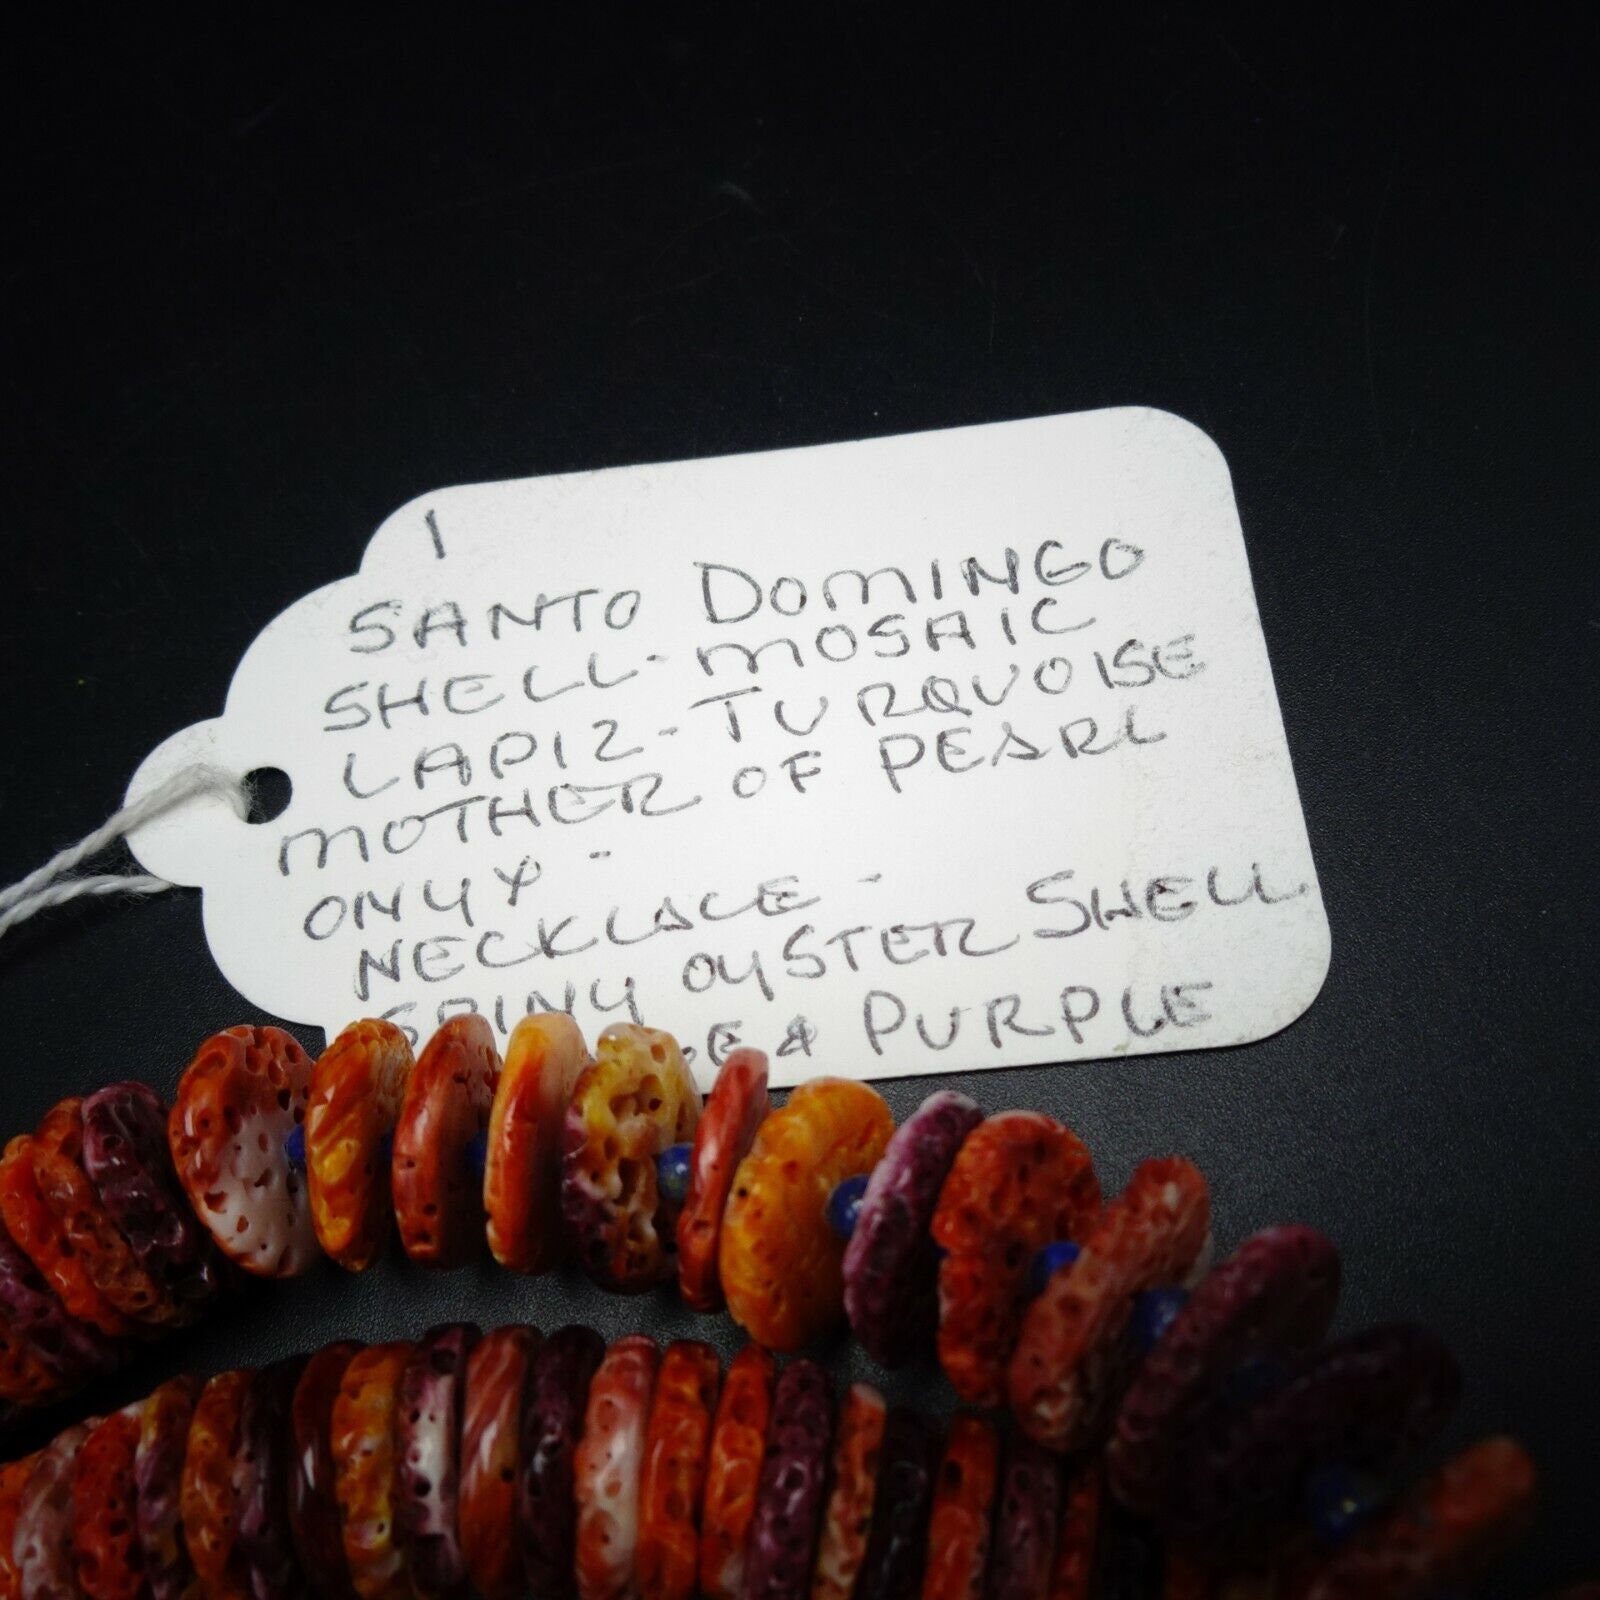 1
SANTO DOMINGO
SHELL-MOSAIC
LAPIZ-TURQUOISE
MOTHER OF PEARL
ONYX-
NECKLACE-
SPINY OYSTER SHELL
& PURPLE